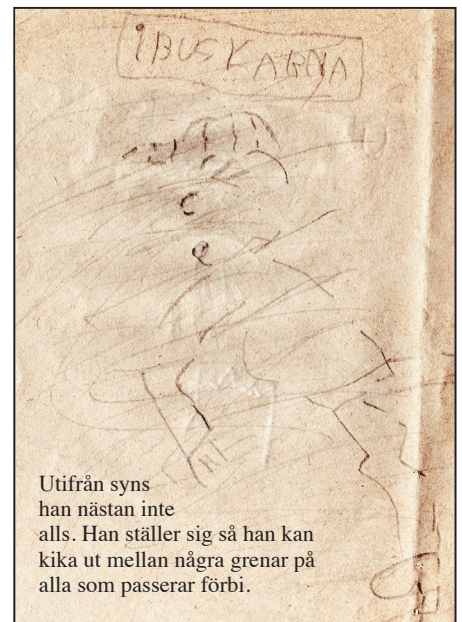 I BUSKARNA
Utifrån syns
han nästan inte
alls. Han ställer sig så han kan
kika ut mellan några grenar på
alla som passerar förbi.